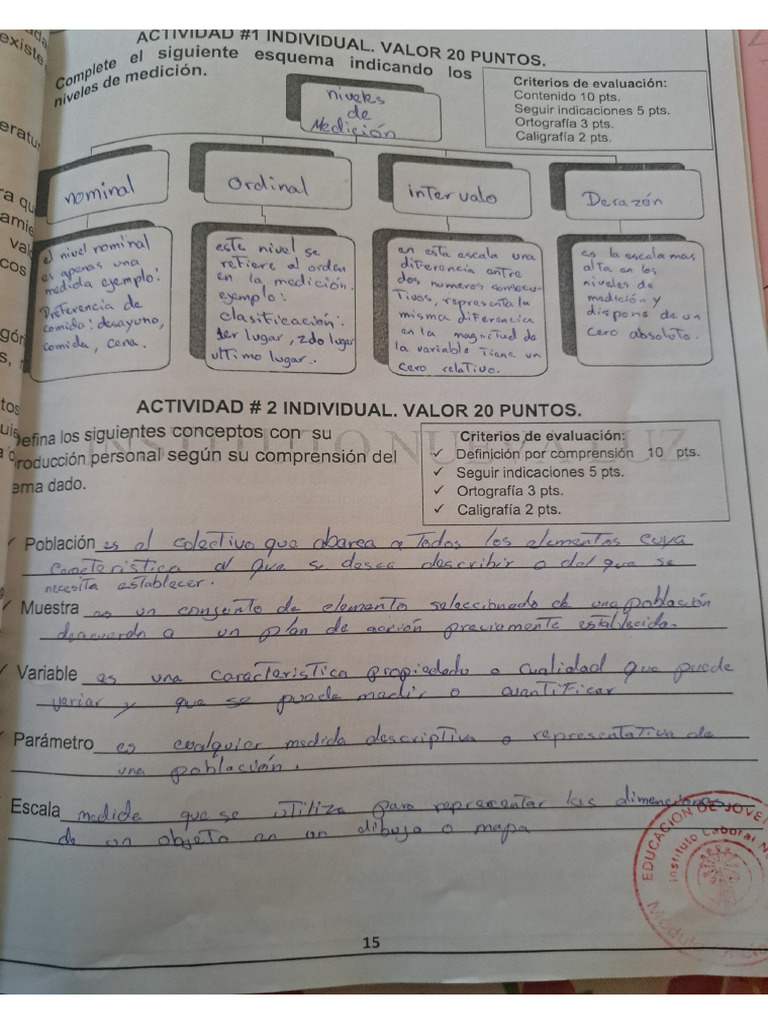 ACTIVIDAD #1 INDIVIDUAL. VALOR 20 PUNTOS.
Complete el siguiente esquema indicando los
niveles de medición.
Criterios de evaluación:
Contenido 10 pts.
Seguir indicaciones 5 pts.
Ortografía 3 pts.
Caligrafía 2 pts.
niveles
de
Medición
nominal
Ordinal
intervalo
Derazón
el nivel nominal
es apenas una
medida ejemplo:
Preferencia de
comida: desayuno,
comida, cena.
este nivel se
refiere al orden
en la medición.
ejemplo:
clasificación:
1er lugar, 2do lugar
ultimo lugar.
en esta escala una
diferencia entre
dos numeros consecu-
tivos, representa la
misma diferencia
en la magnitud de
la variable tiene un
cero relativo.
es la escala mas
alta en los
niveles de
medición y
dispone de un
cero absoluto.
ACTIVIDAD # 2 INDIVIDUAL. VALOR 20 PUNTOS.
efina los siguientes conceptos con su
roducción personal según su comprensión del
ema dado.
Criterios de evaluación:
✓ Definición por comprensión 10 pts.
✓ Seguir indicaciones 5 pts.
✓ Ortografía 3 pts.
✓ Caligrafía 2 pts.
Población es el colectivo que abarca a todos los elementos cuya
caracteristica al que se desea describir o del que se
necesita establecer.
✓ Muestra es un conjunto de elemento seleccionado de una población
deacuerdo a un plan de acción previamente establecido.
✓ Variable es una caracteristica propiedad o cualidad que puede
variar y que se puede medir o cuantificar
Parámetro es cualquier medida descriptiva o representativa de
una población.
Escala medida que se utiliza para representar las dimenciones
de un objeto en un dibujo o mapa
EDUCACIÓN DE JOVE
Instituto Laboral N
15